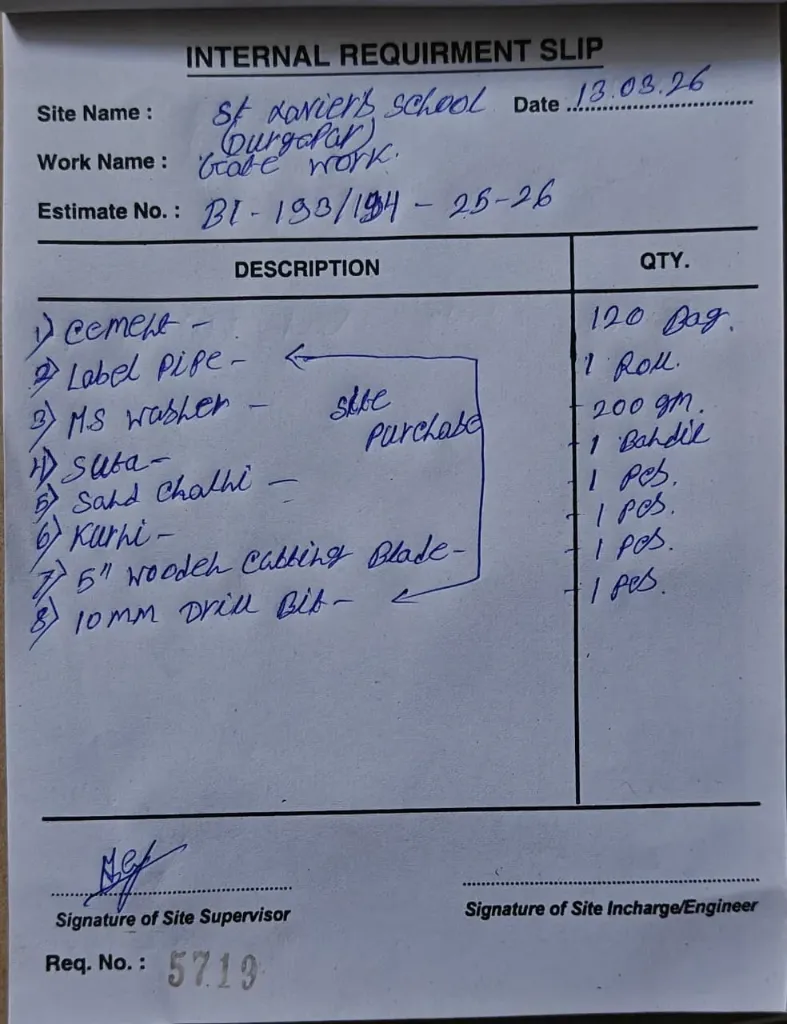 INTERNAL REQUIRMENT SLIP
Site Name : St Xavier's School Date 13.03.26
(Durgapur)
Work Name : Gate work.
Estimate No. : BI - 193/194 - 25-26
DESCRIPTION QTY.
1) Cement - 120 Bag.
2) Label Pipe - 1 Roll.
3) M.S washer - 200 gm.
site purchase
4) Suta - 1 Bandil
5) Sand Chalni - 1 Pcs.
6) Kurni - 1 Pcs.
7) 5" wooden Cutting Blade - 1 Pcs.
8) 10mm Drill Bit - 1 Pcs.
Signature of Site Supervisor Signature of Site Incharge/Engineer
Req. No. : 5719